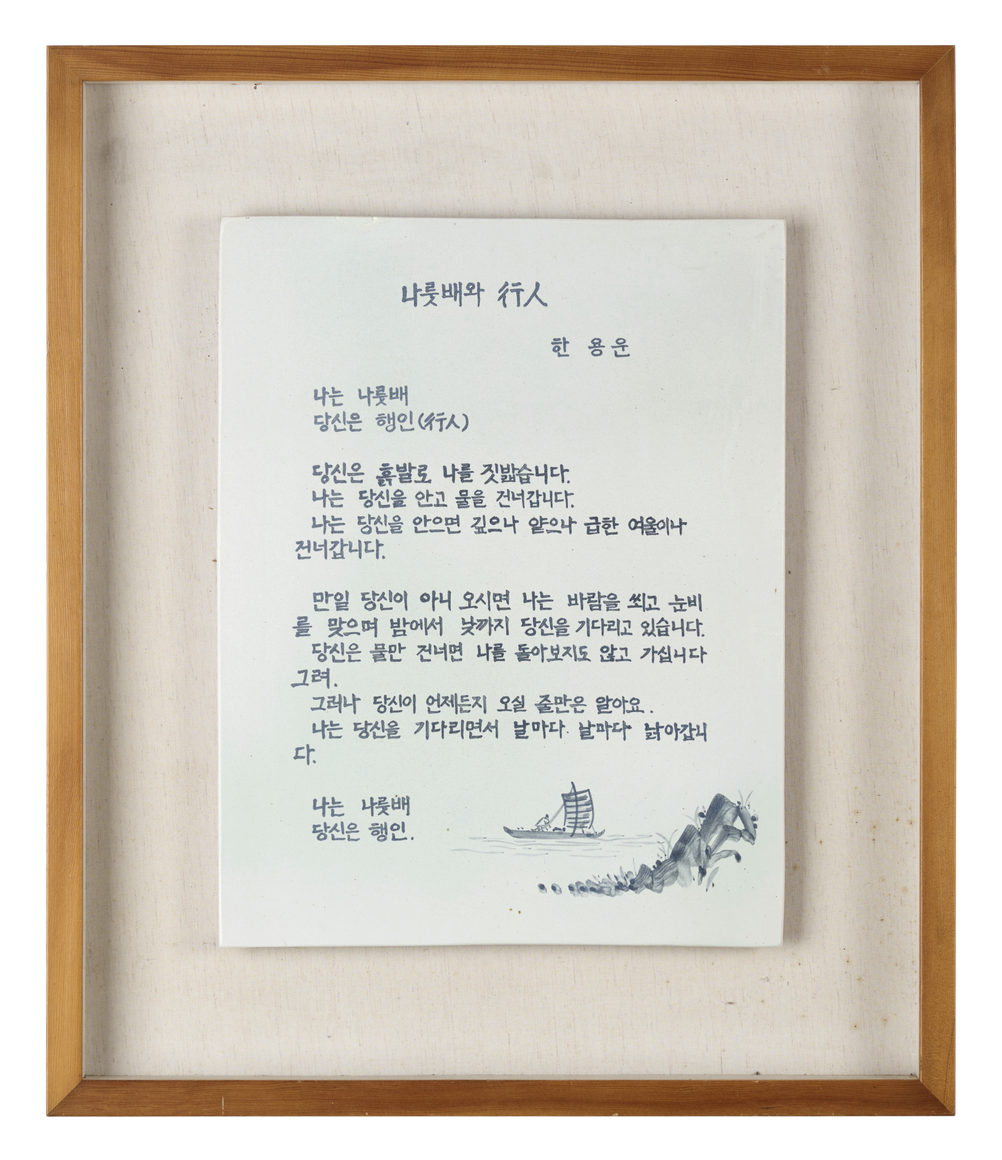 나룻배와 行人
한 용 운
나는 나룻배
당신은 행인(行人)
당신은 흙발로 나를 짓밟습니다.
나는 당신을 안고 물을 건너갑니다.
나는 당신을 안으면 깊으나 얕으나 급한 여울이나
건너갑니다.
만일 당신이 아니 오시면 나는 바람을 쐬고 눈비
를 맞으며 밤에서 낮까지 당신을 기다리고 있습니다.
당신은 물만 건너면 나를 돌아보지도 않고 가십니다
그려.
그러나 당신이 언제든지 오실 줄만은 알아요.
나는 당신을 기다리면서 날마다 날마다 낡아갑니
다.
나는 나룻배
당신은 행인.